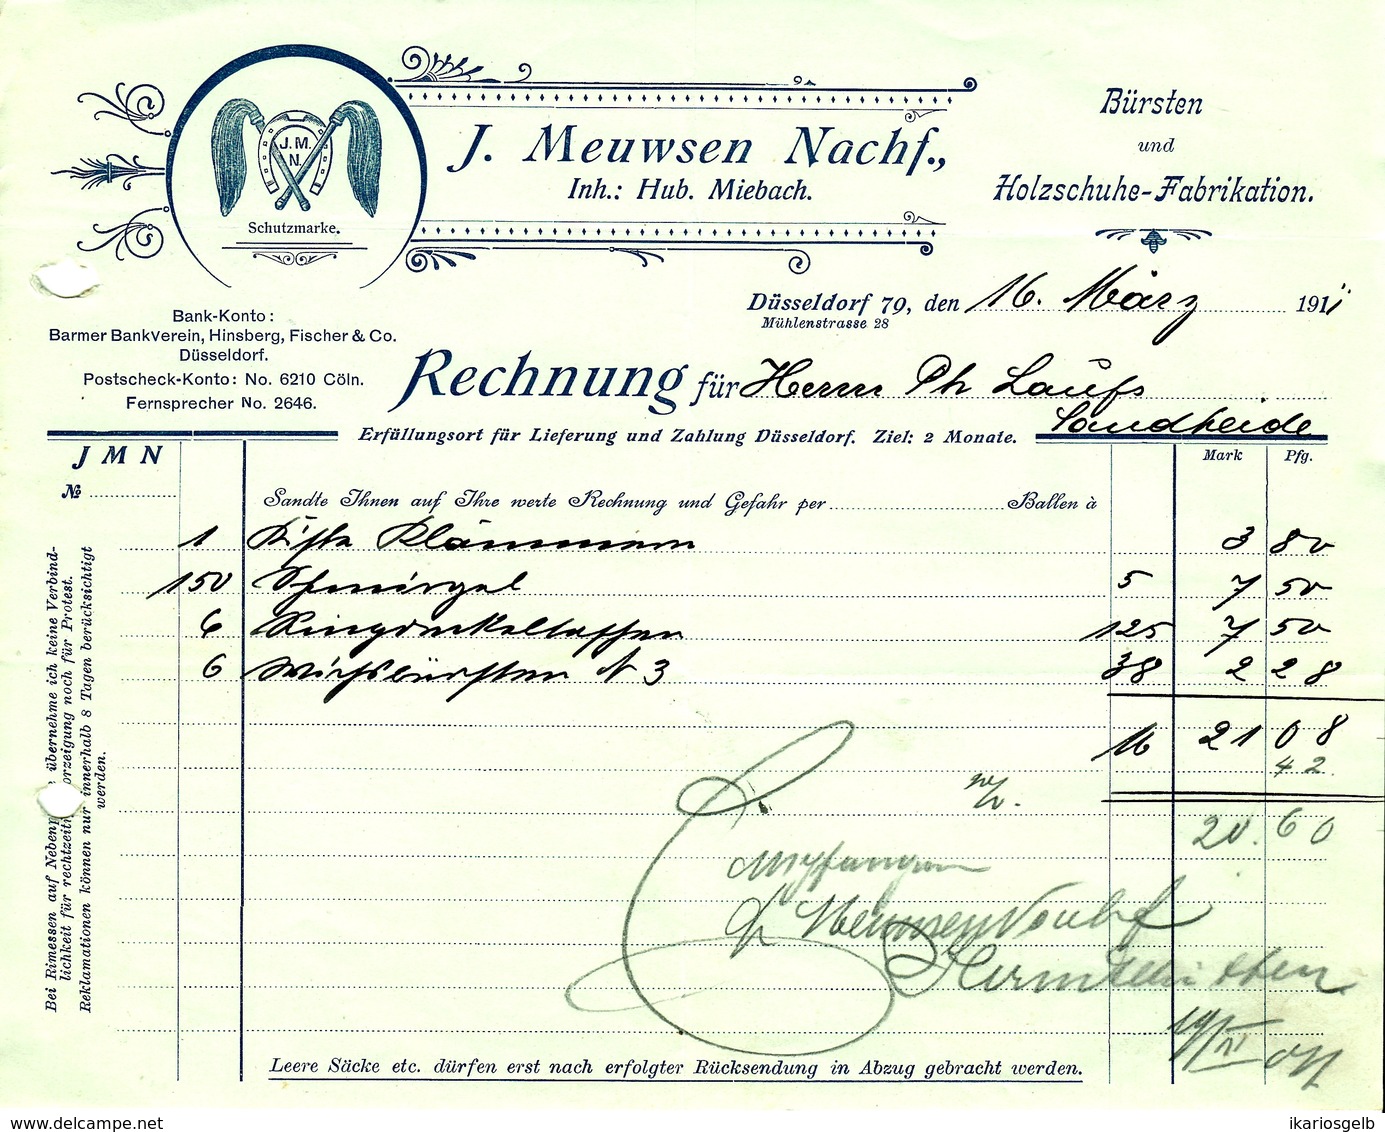 J. M.
N.
Schutzmarke.
J. Meuwsen Nachf.,
Inh.: Hub. Miebach.
Bürsten
und
Holzschuhe-Fabrikation.
Bank-Konto:
Barmer Bankverein, Hinsberg, Fischer & Co.
Düsseldorf.
Postscheck-Konto: No. 6210 Cöln.
Fernsprecher No. 2646.
Düsseldorf 79, den 16. März 1911
Mühlenstrasse 28
Rechnung für Herrn Ph Laufs
Sandheide
Erfüllungsort für Lieferung und Zahlung Düsseldorf. Ziel: 2 Monate.
J M N
Mark Pfg.
No
Sandte Ihnen auf Ihre werte Rechnung und Gefahr per Ballen à
1 Kiste Klammern 3 80
150 Schmirgel 5 7 50
6 125 7 50
6 Wichsbürsten N 3 38 2 28
M 21 08
42
20.60
Empfangen
Meuwsen Nachf
Bei Rimessen auf Nebenp übernehme ich keine Verbind-
lichkeit für rechtzeiti orzeigung noch für Protest.
Reklamationen können nur innerhalb 8 Tagen berücksichtigt
werden.
Leere Säcke etc. dürfen erst nach erfolgter Rücksendung in Abzug gebracht werden.
www.delcampe.net
ikariosgelb